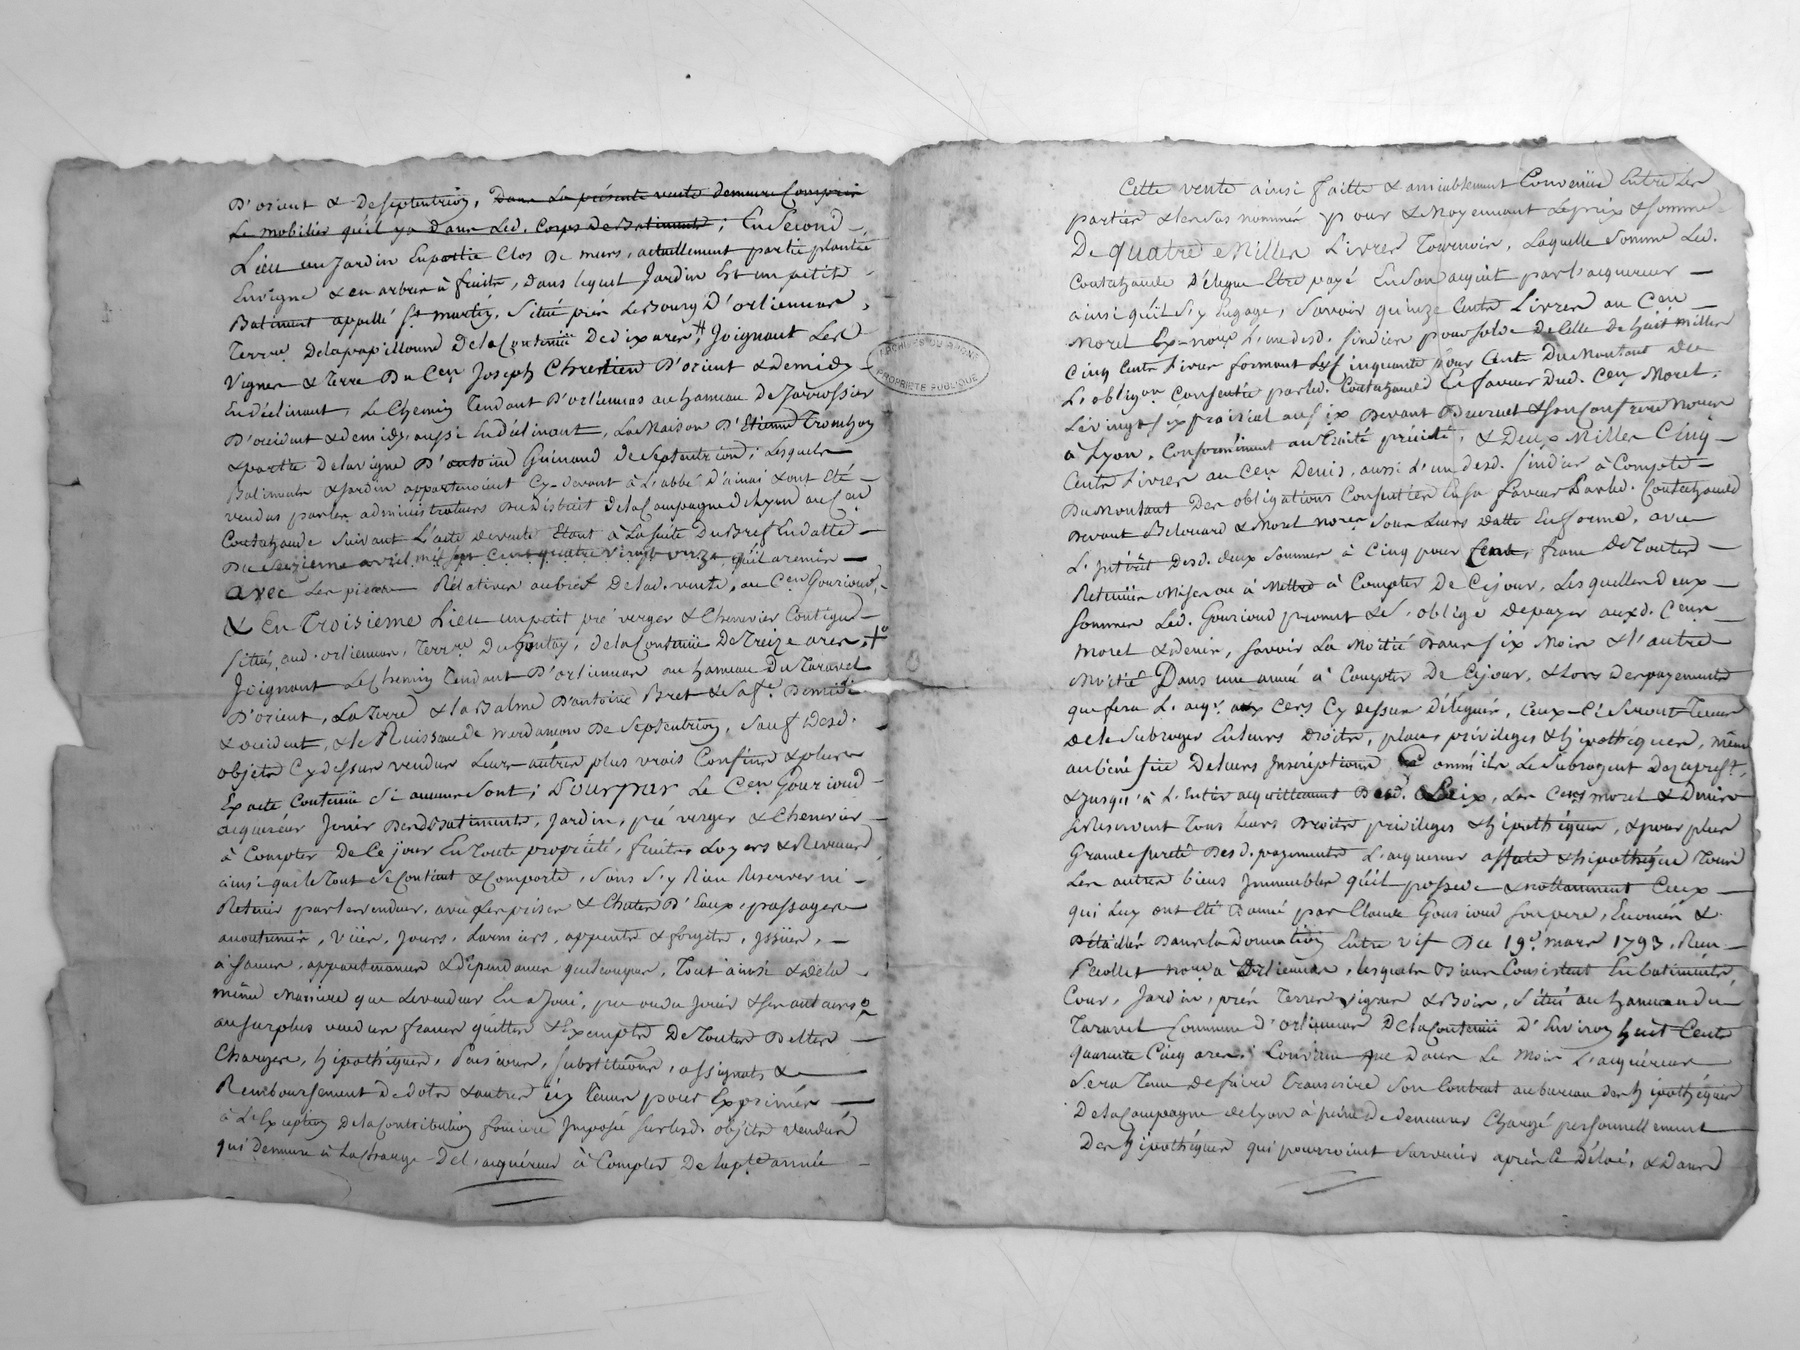 D'orient & de septentrion, Dans la présente vente demeure Compris
Le mobilier qu'il y a dans Led. Corps de Batiments; En Second
Lieu un Jardin En partie Clos de murs, actuellement partie plantée
En vigne & en arbres à fruits, dans lequel Jardin Est un petit
Batiment appellé St martin, Situé près Le Bourg D'orlienas,
Terrre De la papillonne De la Contenüe De dix ares, # Joignant Les
Vignes & terre Du Cen Joseph Chretien D'orient & de midy
En déclinant, Le Chemin Tendant D'orlienas au hameau de
D'occident & de midy aussi En déclinant, La Maison D'Etienne Tronchon
& partie De la vigne D'antoine Guinand De Septentrion; Lesquels
Batiments & Jardin appartenoient Cy-devant à L'abbé D'ainai & ont Eté
vendus par les administrateurs Du District De la Campagne de Lyon au Cen
Coutachaude Suivant L'acte de vente Etant à La Suite Du Bref En datte
Du Seizieme avril mil sept Cent quatre vingt onze, qu'il a remis
avec Les pieces Rélatives au bref De lad. vente, au Cen Gouriond,
& En Troisieme Lieu un petit pré verger & Chenevier Contigus
Situés aud. orlienas, Terrre Du, de la Contenüe De Treize ares, +
Joignant Le Chemin Tendant D'orlienas au hameau Du Taravel
D'orient, La Terre & la Balme D'antoine Bret & De midi
& occident, & le Ruisseau de merdanson De Septentrion, Sauf Desd.
objets Cy dessus vendus Leurs autres plus vrais Confins & plus
Exacte Contenüe Si aucuns Sont; Pour par Le Cen Gouriond
acquéreur Jouir Desd. Batiments, Jardin, pré verger & Chenevier
à Compter De Ce jour En Toute propriété, fruits, Loyers & Revenus,
ainsi que le Tout Se Contient & Comporte, Sans S'y Rien Reserver ni
Retenir par le vendeur, avec Les prises & Chutes D'Eaux, passages
accoutumés, Vües, Jours, Larmiers, appentis & forjets, Issües,
aisances, appartenances & dépendances quelconques, Tout ainsi & de la
même Maniere que Le vendeur En a Joui, pu ou du Jouir & ses auteurs
au Surplus vendues franes quittes & Exemptes De Toutes Dettes
Charges, hipothéques, Pensions, Substitutions, assignats &
Remboursement De dots & autres icy Tenus pour Exprimés
à L'Exception De la Contribution fonciere Imposée Sur Lesd. objets vendus
qui Demeure à La Charge De L'acquéreur à Compter De La pte année
ARCHIVES DU RHONE
PROPRIETE PUBLIQUE
Cette vente ainsi faitte & amiablement Convenüe Entre Les
parties & les Sus nommés pour & Moyennant Le prix & Somme
De quatre Milles Livres Tournois, Laquelle Somme Led.
Coutachaude Délegue Etre payé En Son acquit par L'acquéreur
ainsi qu'il S'y Engage, Savoir quinze Cents Livres au Cen
Morel Ex-nore L'un desd. Sindics pour Solde De Celle de huit milles
Cinq Cents Livres formant Les Cinquante pour Cent Du Montant De
L'obligon Consentie par led. Coutachaude En faveur Dud. Cen Morel,
Le vingt Six frairial an Six Devant & Son Confrere Nores
à Lyon, Conformément au Traité précité, & Deux Milles Cinq
Cents Livres au Cen Denis, aussi L'un desd. Sindics à Compte
Du Montant Des obligations Consenties En Sa faveur Par led. Coutachaude
Devant Belouard & Morel nores Sous Leurs datte En forme, avec
L'intérêt Desd. deux Sommes à Cinq pour Cent, franc De Toutes
Retenües Mises ou à Mettre à Compter De Ce jour, Lesquelles deux
Sommes Led. Gouriond promet & S'oblige De payer auxd. Cens
Morel & Denis, Savoir La Moitié Dans Six Mois & l'autre
Moitié Dans une année à Compter De Ce jour, & Lors Des payements
que fera L'aqr aux Cens Cy dessus Délegués, Ceux-Ci Seront Tenus
De le Subroger En leurs Droits, place, privileges & hipothéques, même
au béné fice De leurs Inscriptions, Comm'ils Le Subrogent Dez à prest,
& Jusqu'à L'Entier acquittement Dud. Prix, Les Cens Morel & Denis
Se Reservent Tous Leurs Droits privileges & hipothéques, & pour plus
Grande Sureté Desd. payements L'acquereur affecte & hipothéque Tous
Les autres biens Immeubles qu'il possede & nottamment Ceux
qui Luy ont Eté Donné par Claude Gouriond Son pere, Enoncés &
Détaillés Dans la Donnation Entre vif Du 19e. mars 1793, Reçu
nore à Orlienas, lesquels Biens Consistent En batiments,
Cour, Jardin, prés Terres vignes & Bois, Situé au hameau du
Taravel Commune D'orlienas De la Contenüe D'Environ huit Cents
quarante Cinq ares; Convenu que Dans Le Mois L'acquéreur
Sera Tenu de faire Transcrire Son Contrat au bureau des hipothéques
De la Campagne de Lyon à peine de demeurer Chargé personnellement
Des hipothéques qui pourroient Survenir après Ce Délai, & Dans